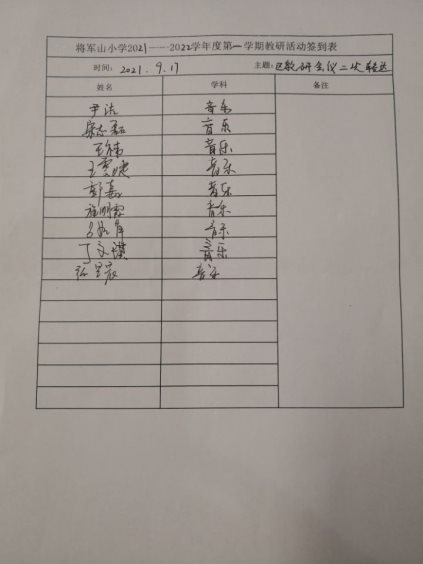 将军山小学2021——2022学年度第一学期教研活动签到表
时间: 2021.9.17 主题: 区教研会仪二次转达
姓名 学科 备注
尹洁 音乐
音乐
王伟 音乐
王雯婕 音乐
彭嘉 音乐
施明霞 音乐
音乐
丁文祺 音乐
音乐